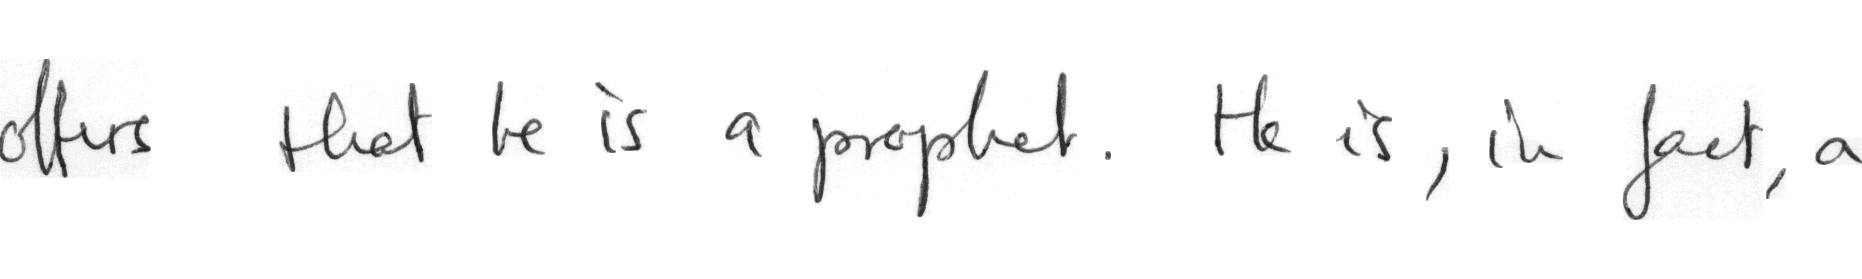 offers that he is a prophet. He is, in fact, a